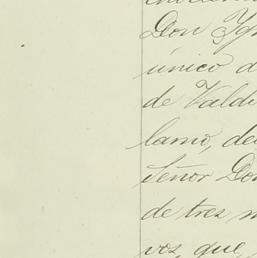 Don Ygn
único d
de Valdi
lamo, de
Señor Don
de tres m
vos, que